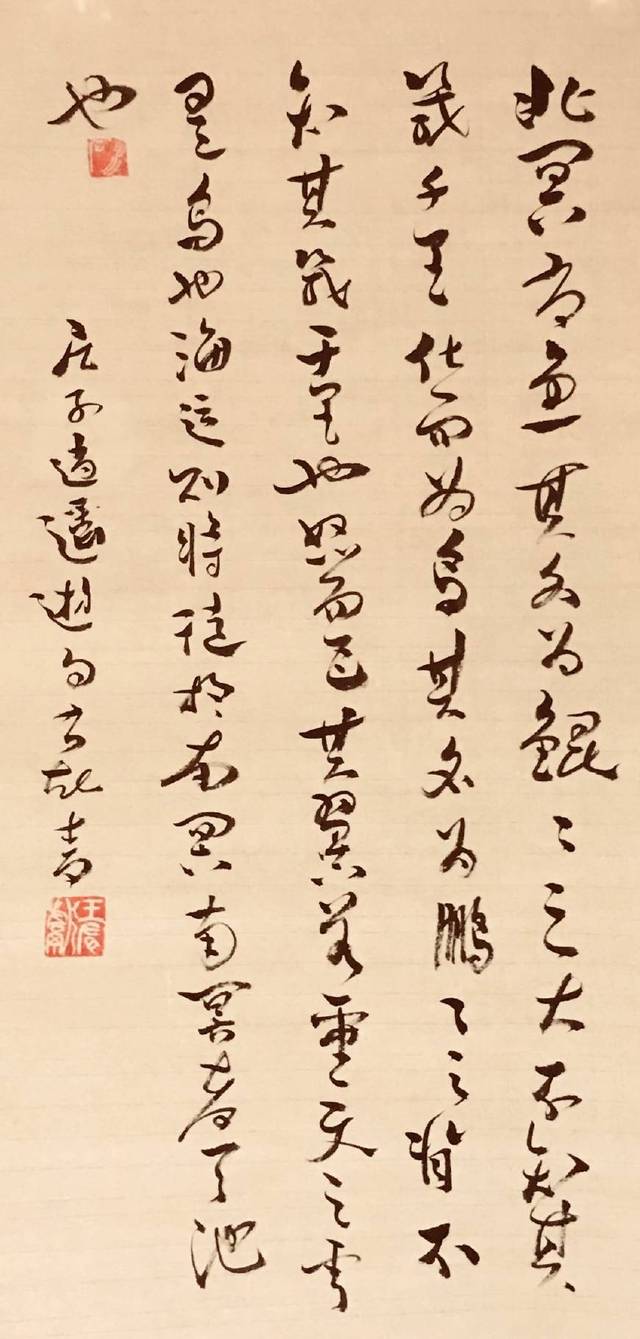 北冥有魚其名为鲲〻之大不知其
幾千里化而为鸟其名为鵬〻之背不
知其幾千里也怒而飞其翼若垂天之雲
是鸟也海运则将徙於南冥南冥者天池
也
庄子逍遥遊句